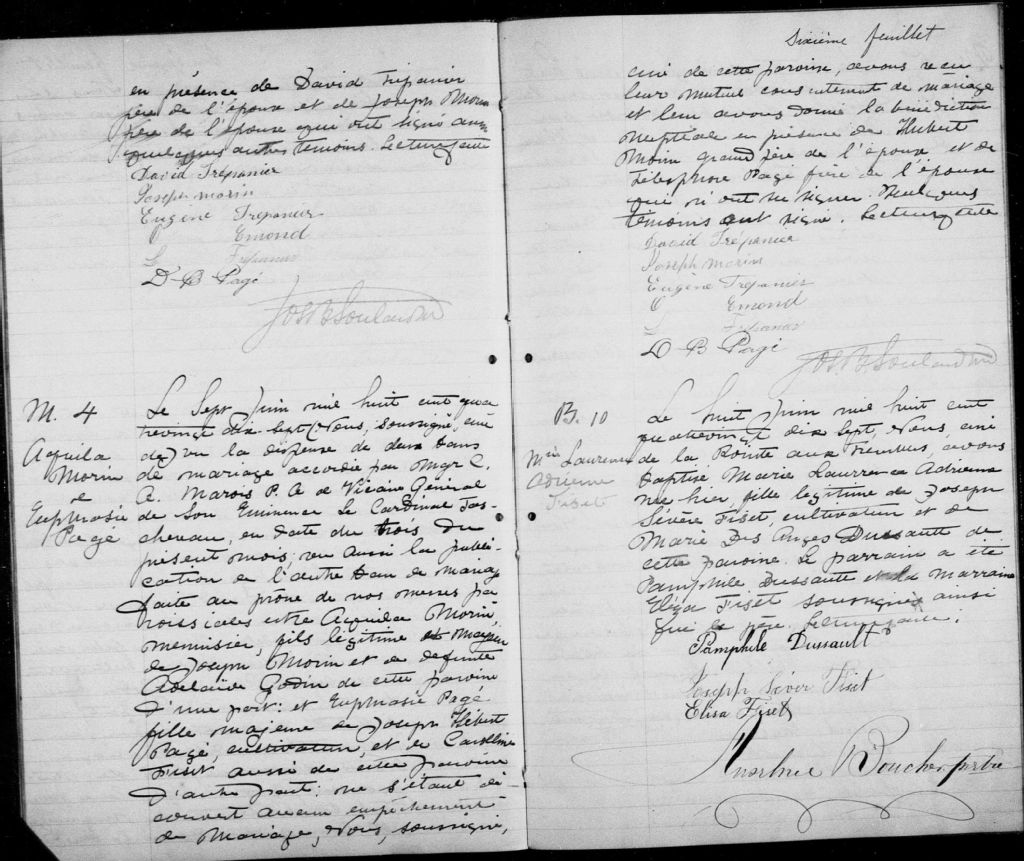 en présence de David Trépanier
père de l'épouse et de Joseph Morin
père de l'épouse qui ont signé avec
quelques autres temoins. Lecture faite
David Trépanier
Joseph morin
Eugène Trépanier
Emond
L Trépanier
D-B Pagé
M. 4
Aquila
Morin
et
Euphrasie
Pagé
Le Sept Juin mil huit cent qua
trevingt dix-sept, Nous, soussigné, curé
de) vu la dispense de deux bans
de mariage accordée par Mgr C.
A. Marois P. A. et Vicaire Général
de Son Eminence Le Cardinal Tas-
chereau, en date du trois du
présent mois, vu aussi la publi-
cation de l'autre ban de mariage
faite au prône de nos messes pa
roissiales entre Aquila Morin,
menuisier, fils légitime et majeur
de Joseph Morin et de defunte
Adelaïde Godin de cette paroisse
d'une part: et Euphrasie Pagé
fille majeure de Joseph Hébert
Pagé, cultivateur, et de Caroline
Fiset aussi de cette paroisse
d'autre part: ne s'étant dé
couvert aucun empêchement
de Mariage, Nous, soussigné,
Sixième feuillet
curé de cette paroisse, avons recu
leur mutuel consentement de mariage
et leur avons donné la bénédiction
Nuptiale en présence de Hubert
Morin grand père de l'époux et de
Télesphore Pagé frère de l'épouse
qui n'ont su signer. Quelques
temoins ont signé. Lecture faite
David Trépanier
Joseph morin
Eugène Trépanier
Emond
L Trépanier
D B Pagé
B. 10
Mie Laurence
Adrienne
Fiset
Le huit Juin mil huit cent
quatrevingt dix sept, Nous curé
de la Pointe aux Trembles, avons
baptisé Marie Laurence Adrienne
née hier, fille légitime de Joseph
Sévère Fiset, cultivateur et de
Marie Des Anges Dussault de
cette paroisse. Le parrain a été
Pamphile Dussault et la marraine
Eliza Fiset soussignés ainsi
que le père. Lecture faite.
Pamphile Dussault
Joseph Séver Fiset
Elisa Fiset
Boucher ptre